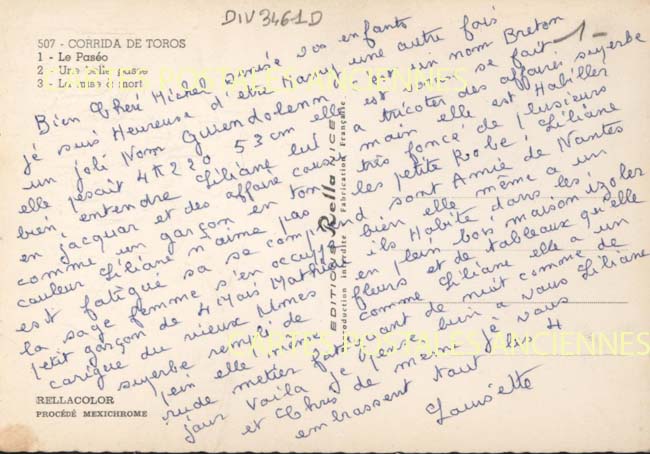 DIV3461D
507 - CORRIDA DE TOROS
1 - Le Paséo
2 - Une belle passe
3 - La mise à mort
1-
CARTES POSTALES ANCIENNES
Bien Cheri Michel Denise vos enfants
je suis Heureuse d'etre Mamy une autre fois
un joli Nom Guendolenn c'est un nom Breton
elle pesait 4K220 53 cm elle est
bien, entendre Liliane lui a tricoter des affaires superbe
en jacquar et des affaire main elle est Habiller
comme un garçon en ton très foncé de plusieurs
couleur Liliane n'aime pas les petite Robe! Liliane
est fatigué sa se comprend sont Amiè de Nantes
la sage femme s'en occupe bien elle même a un
petit garçon de 4 Mois Mathieu ils Habite dans les
du vieux Nimes en plein bois maison izoler
superbe rempli de fleurs et de tableaux qu'elle
pein elle même comme Liliane elle a un
rude metier fait tant de nuit comme de
jour Voila je pense bien a vous Liliane
et Chris de même je vous
embrassent tout 4
Lousette
EDITIONS Rella NICE
Reproduction interdite - Fabrication Française
CARTES POSTALES ANCIENNES
RELLACOLOR
PROCÉDÉ MEXICHROME